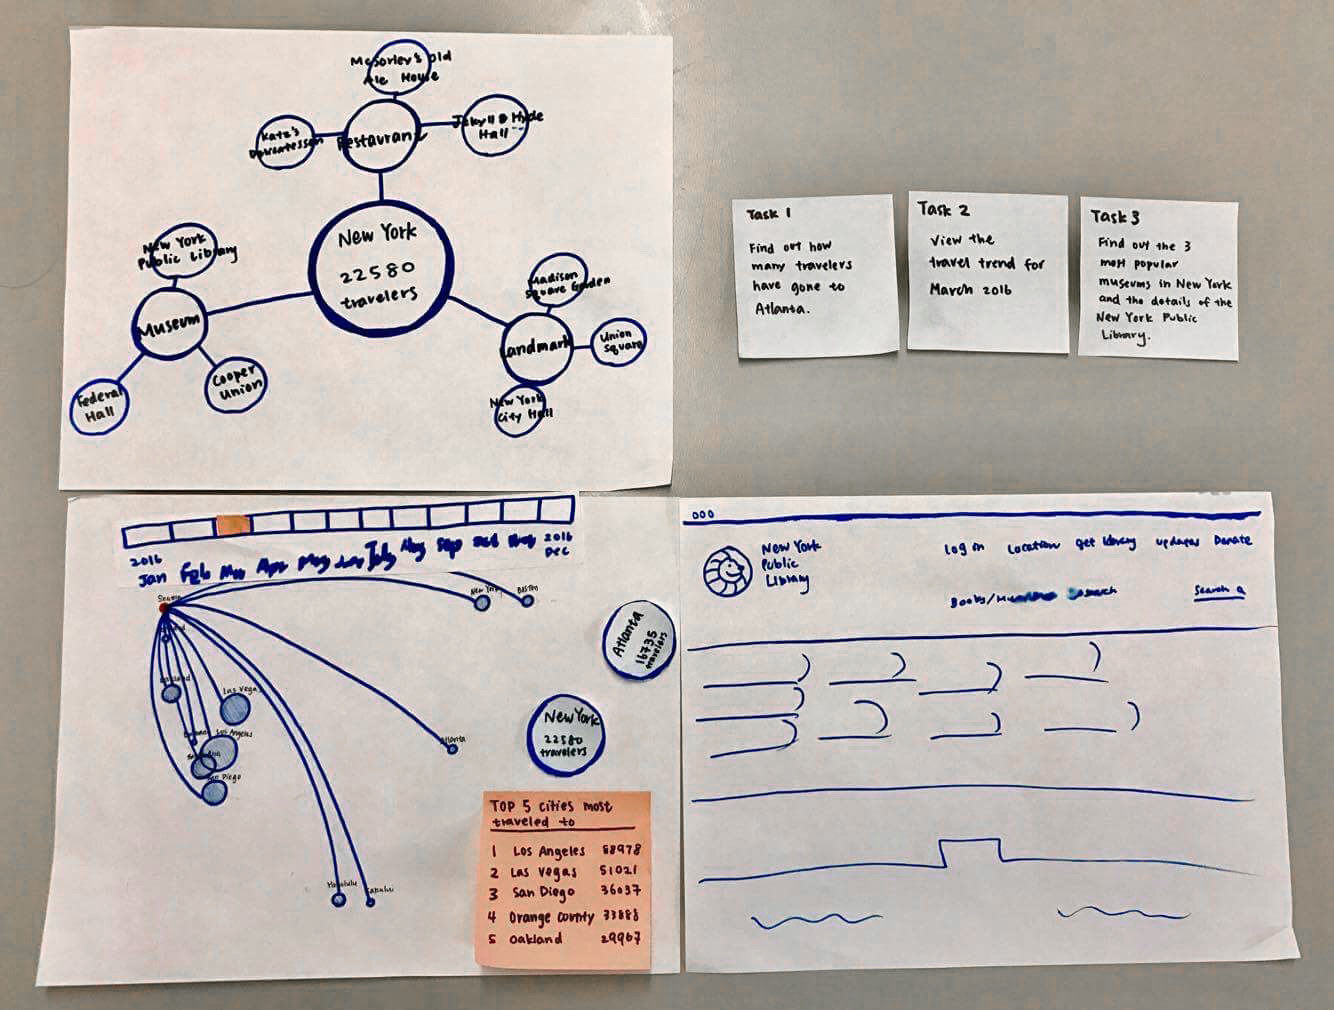 McSorley's Old
Ale House
Katz's
Delicatessen
Restaurant
Jekyll & Hyde
Hall
New York
22580
travelers
New York
Public Library
Museum
Federal
Hall
Cooper
Union
Madison
Square Garden
Landmark
Union
Square
New York
City Hall
Task 1
Find out how
many travelers
have gone to
Atlanta.
Task 2
View the
travel trend for
March 2016
Task 3
Find out the 3
most popular
museums in New York
and the details of the
New York Public
Library.
2016
Jan Feb Mar Apr May Jun July Aug Sep Oct Nov 2016
Dec
New York
Boston
Las Vegas
Los Angeles
San Diego
Atlanta
Atlanta
16735
travelers
New York
22580
travelers
TOP 5 cities most
traveled to
1 Los Angeles 58978
2 Las Vegas 51021
3 San Diego 36037
4 Orange County 33888
5 Oakland 29967
New York
Public
Library
Log in Location Get library Updates Donate
Books/
Search